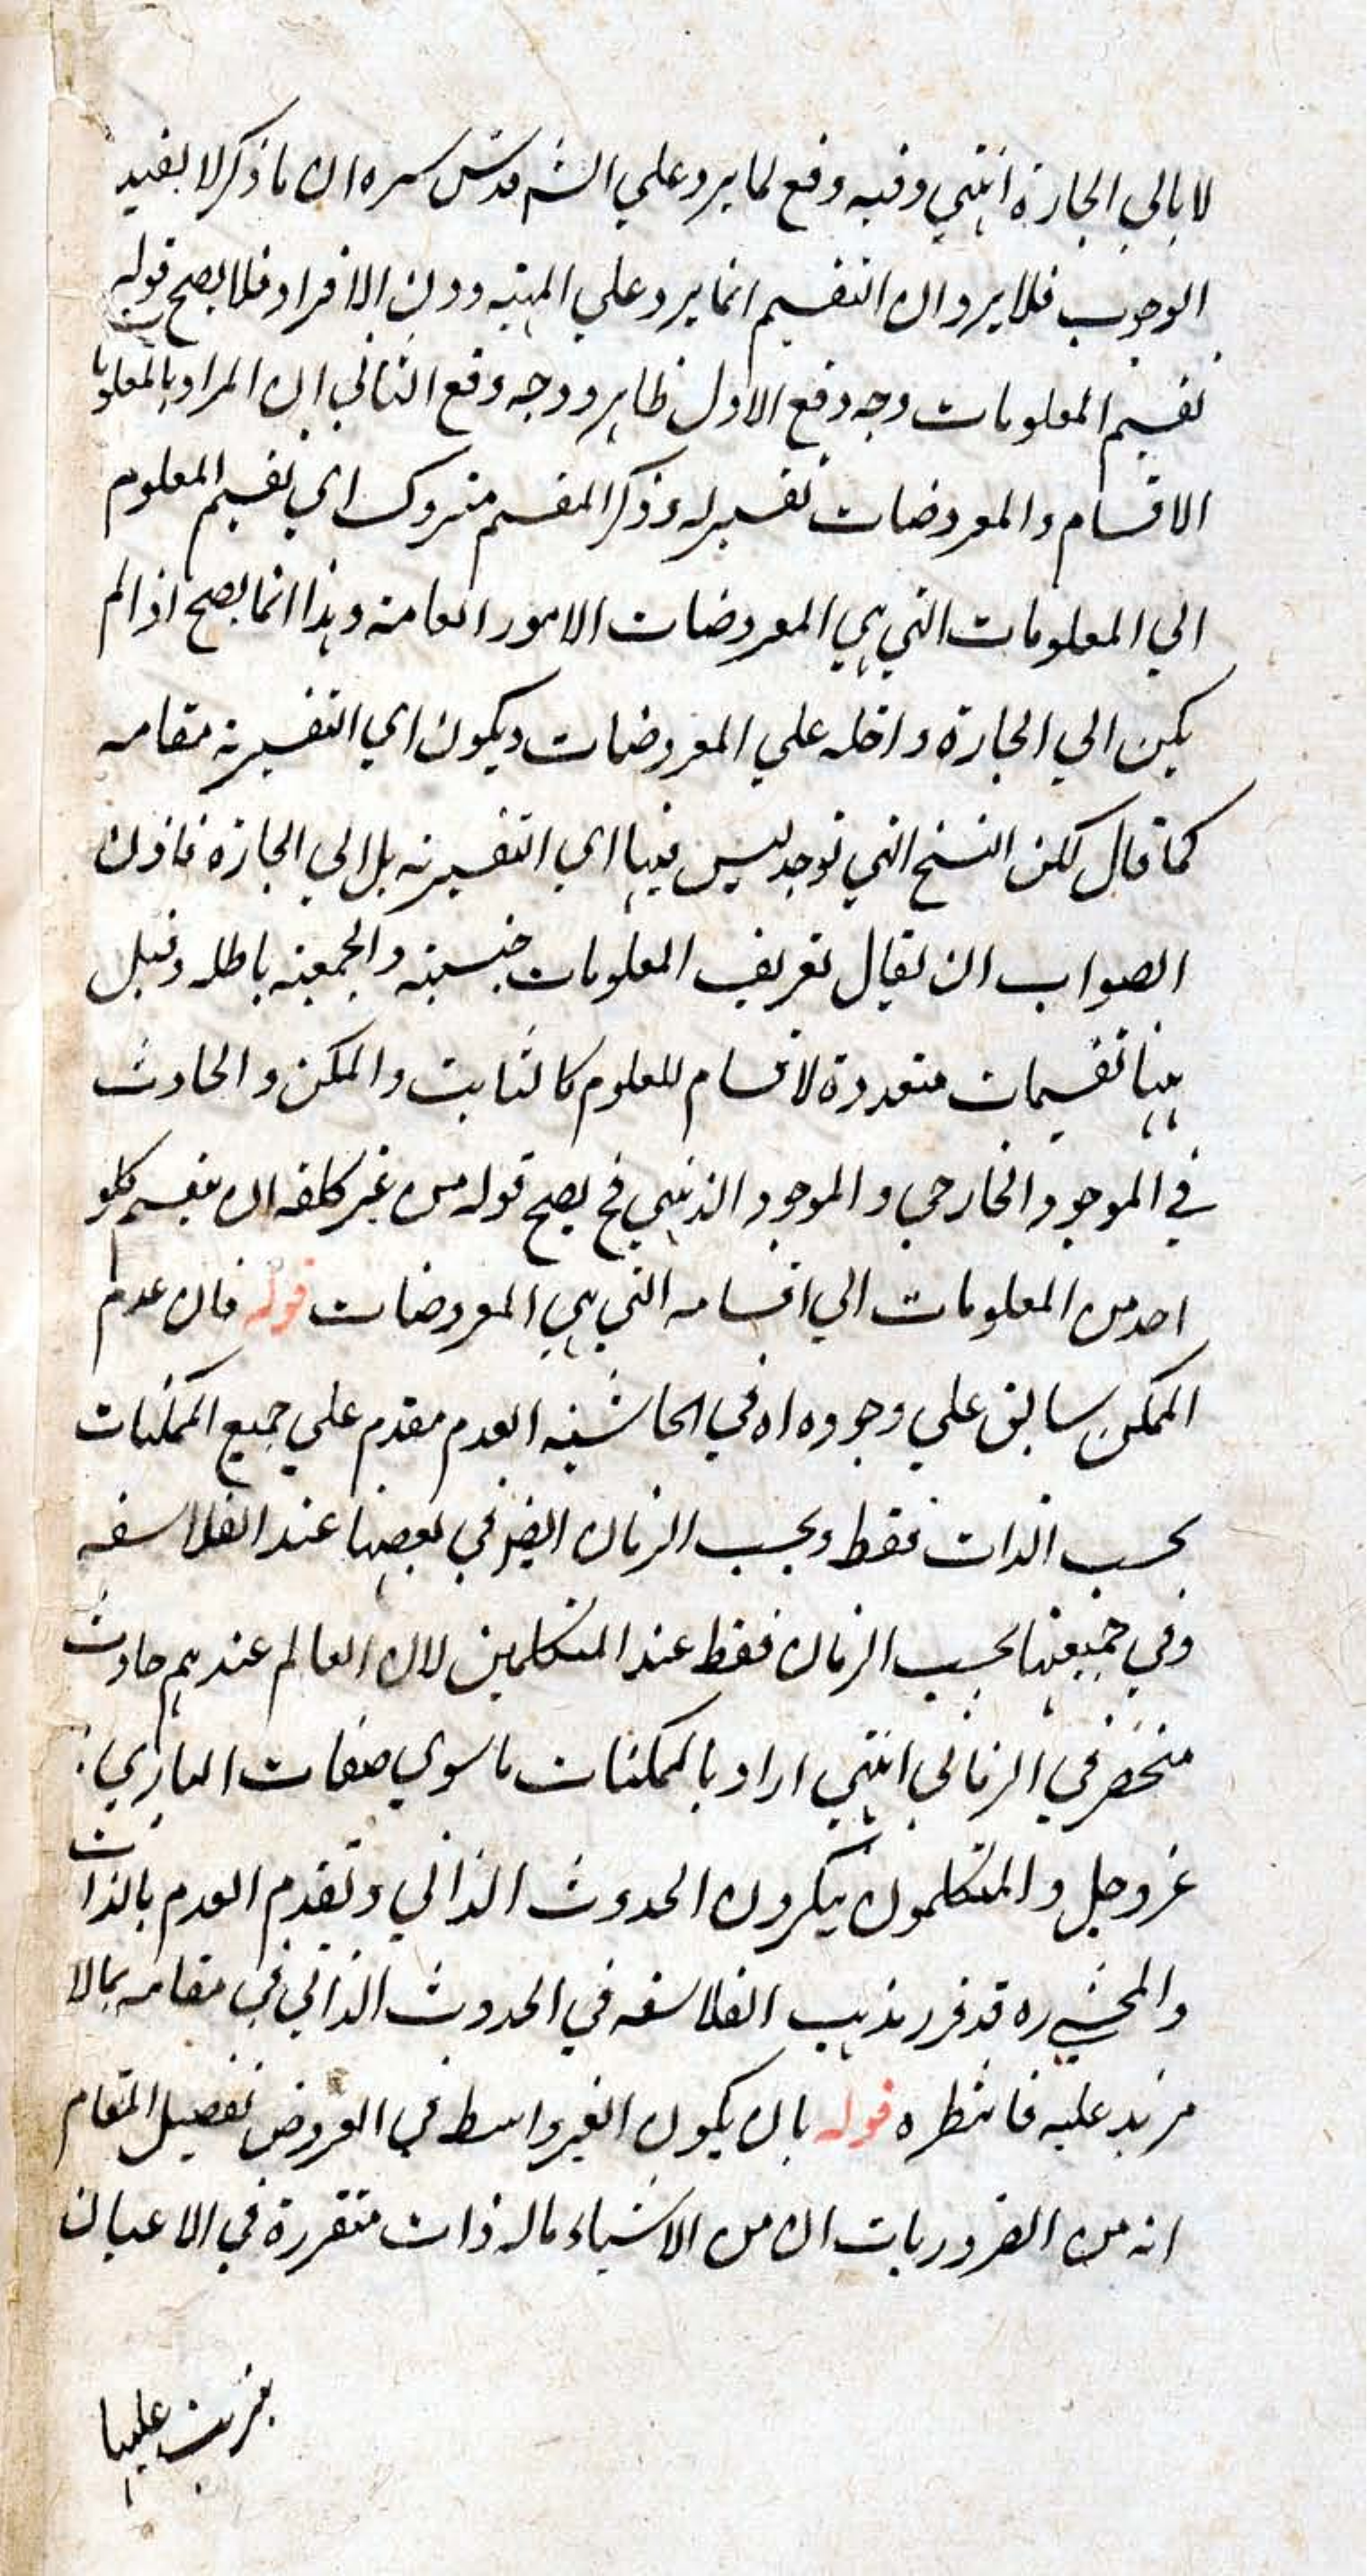 لا بالي الجارة انتهي وفيه دفع لما يرد علي الش قدس سره ان ما ذكر لا يفيد
الوجوب فلا يرد ان التقسيم انما يرد علي المهية دون الافراد فلا يصح قوله
تقسيم المعلومات وجه دفع الاول ظاهر ووجه دفع الثاني ان المراد بالمعلومات
الاقسام والمعروضات تفسير له وذكر المقسم متروك اي تقسيم المعلوم
الي المعلومات التي هي المعروضات الامور العامة وهذا انما يصح اذا لم
يكن الي الجارة داخله علي المعروضات ويكون اي التفسيرية مقامه
كما قال لكن النسخ التي توجد ليس فيها اي التفسيرية بل الي الجارة فاذن
الصواب ان يقال تعريف المعلومات جنسية والجمعية باطله وقيل
ههنا تقسيمات متعددة لاقسام للمعلوم كالثابت والممكن والحادث
في الموجود الخارجي والموجود الذهني فح يصح قوله من غير كلفه ان يقسم كلو
احد من المعلومات الي اقسامه التي هي المعروضات قوله فان عدم
الممكن سابق علي وجوده اه في الحاشية العدم مقدم علي جميع الممكنات
بحسب الذات فقط وبحسب الزمان ايضا في بعضها عند الفلاسفه
وفي جميعها بحسب الزمان فقط عند المتكلمين لان العالم عندهم حادث
منحصر في الزماني انتهي اراد بالممكنات ما سوي صفات الباري
عز وجل والمتكلمون ينكرون الحدوث الذاتي وتقدم العدم بالذات
والمحشي ره قد قرر مذهب الفلاسفه في الحدوث الذاتي في مقامه بما لا
مزيد عليه فانتظره قوله بان يكون الغير واسط في العروض تفصيل المقام
انه من الضروريات ان من الاشياء ما له ذات متقررة في الاعيان
عليها